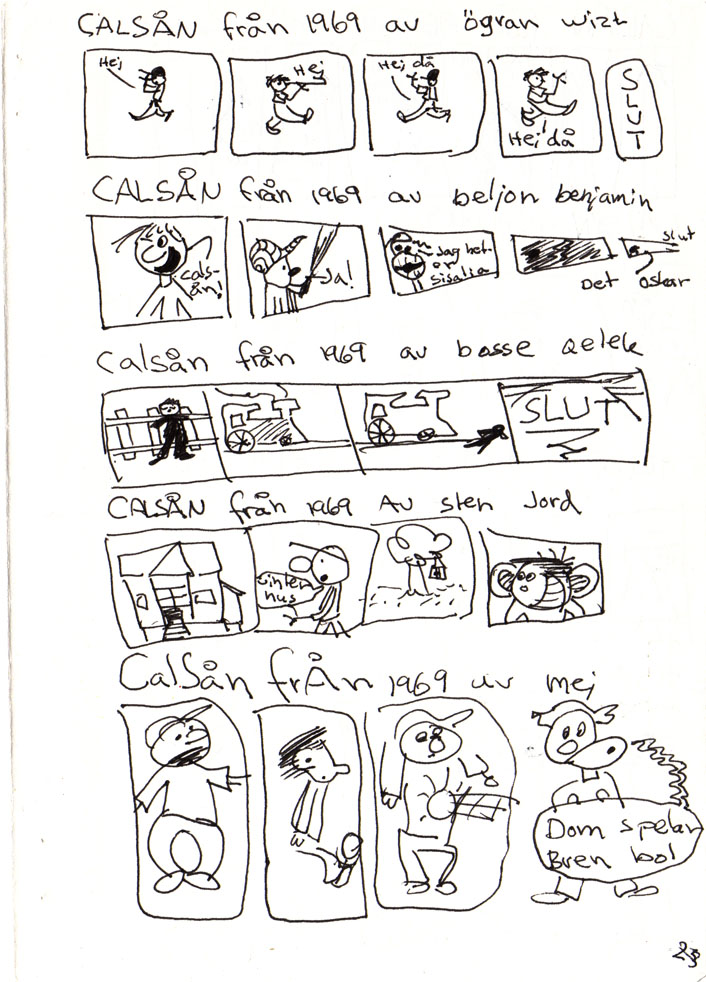 CALSÅN från 1969 av ögran wizt
Hej
Hej
Hej då
Hej då
SLUT
CALSÅN från 1969 av beljon benjamin
Cals-
ån!
Ja!
Jag het-
er
sisalia
slut
Det
oskar
Calsån från 1969 av bosse qelek
SLUT
CALSÅN från 1969 Av sten Jord
vinter
hus
CalSån från 1969 av mej
Dom spelar
Bren bol